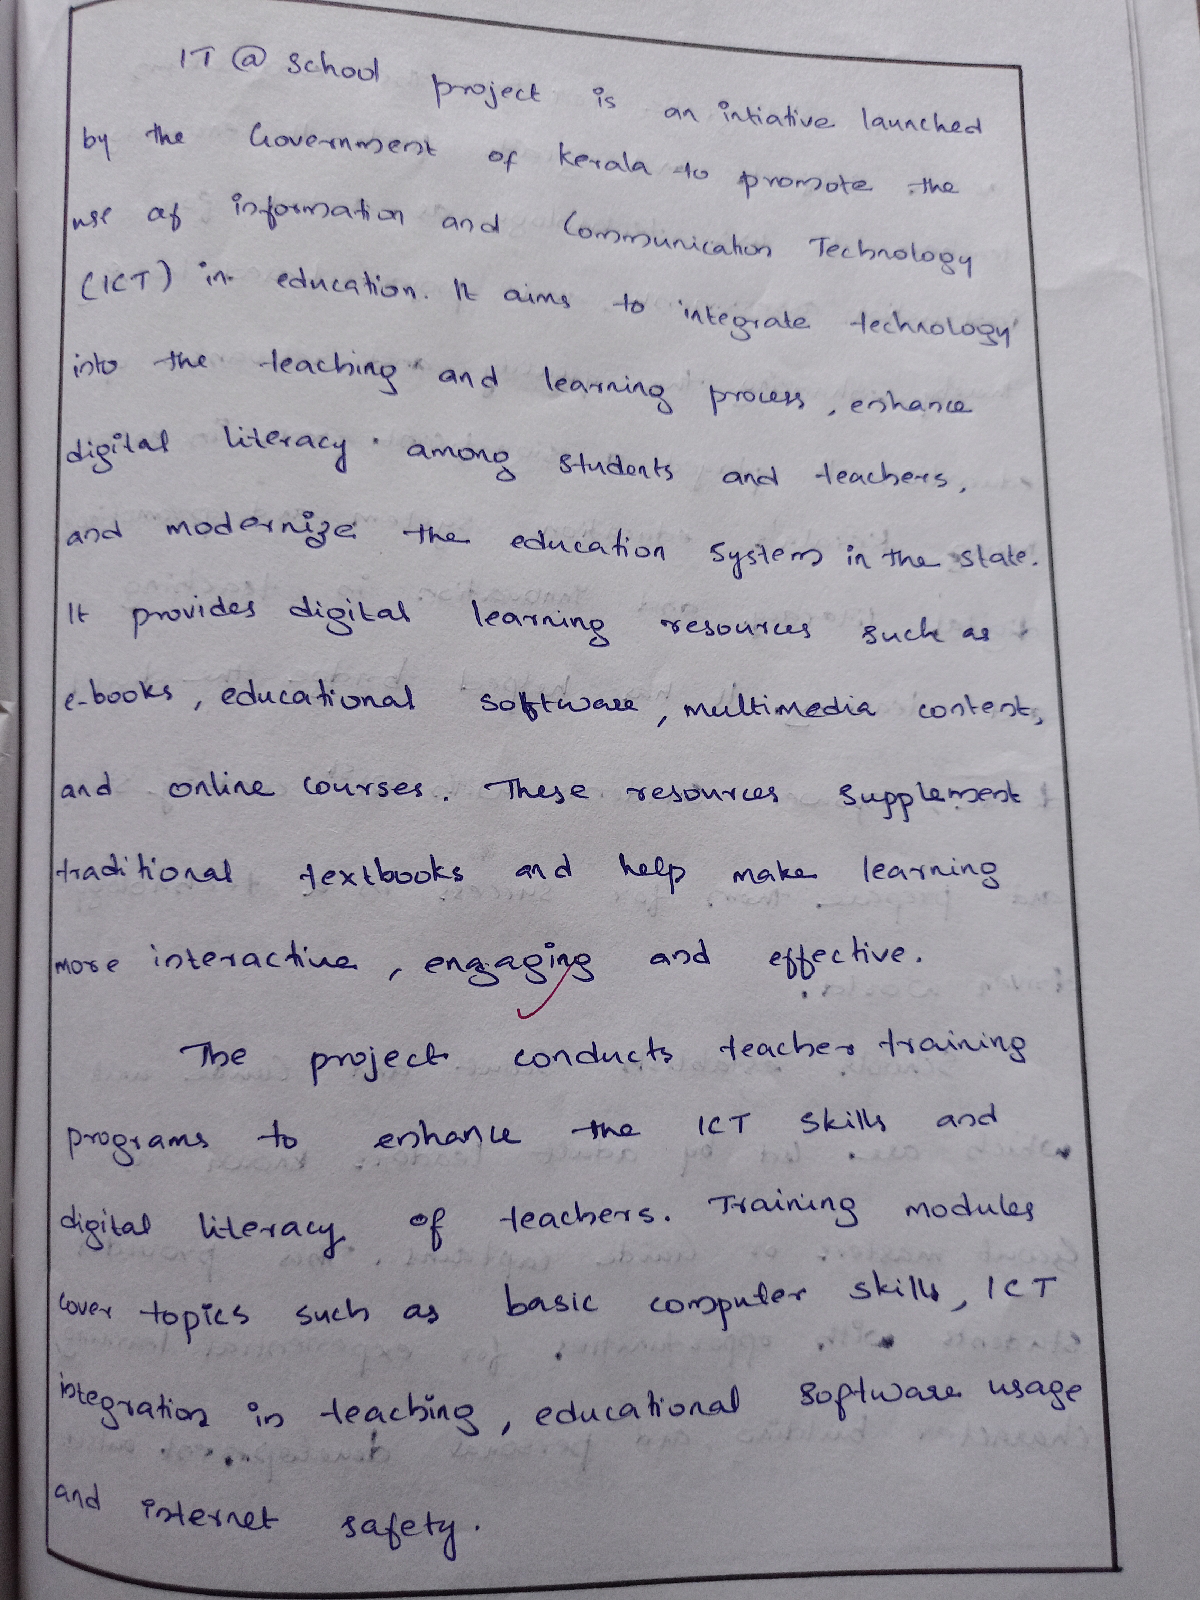 IT @ School project is an intiative launched
by the Government of Kerala to promote the
use of information and Communication Technology
(ICT) in education. It aims to integrate technology
into the teaching and learning process, enhance
digital literacy among students and teachers,
and modernize the education system in the state.
It provides digital learning resources such as
e-books, educational software, multimedia content,
and online courses. These resources supplement
traditional textbooks and help make learning
more interactive, engaging and effective.
The project conducts teacher training
programs to enhance the ICT skills and
digital literacy of teachers. Training modules
cover topics such as basic computer skills, ICT
integration in teaching, educational software usage
and internet safety.